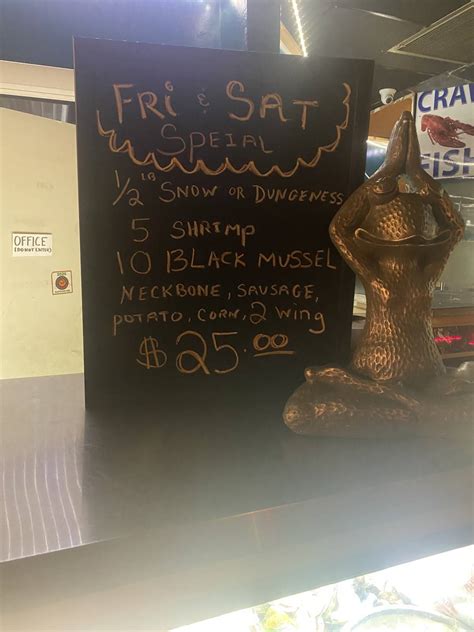 FRI & SAT
SPEIAL
1/2 LB SNOW OR DUNGENESS
5 SHRIMP
10 BLACK MUSSEL
NECKBONE, SAUSAGE,
POTATO, CORN, 2 WING
$25.00
OFFICE
(DO NOT ENTER)
CRA
FISH